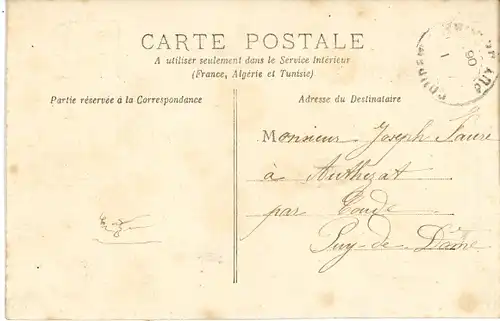 CARTE POSTALE
A utiliser seulement dans le Service Intérieur
(France, Algérie et Tunisie)
Partie réservée à la Correspondance
Adresse du Destinataire
Monsieur Joseph Faure
à Authezat
par Coude
Puy-de Dôme